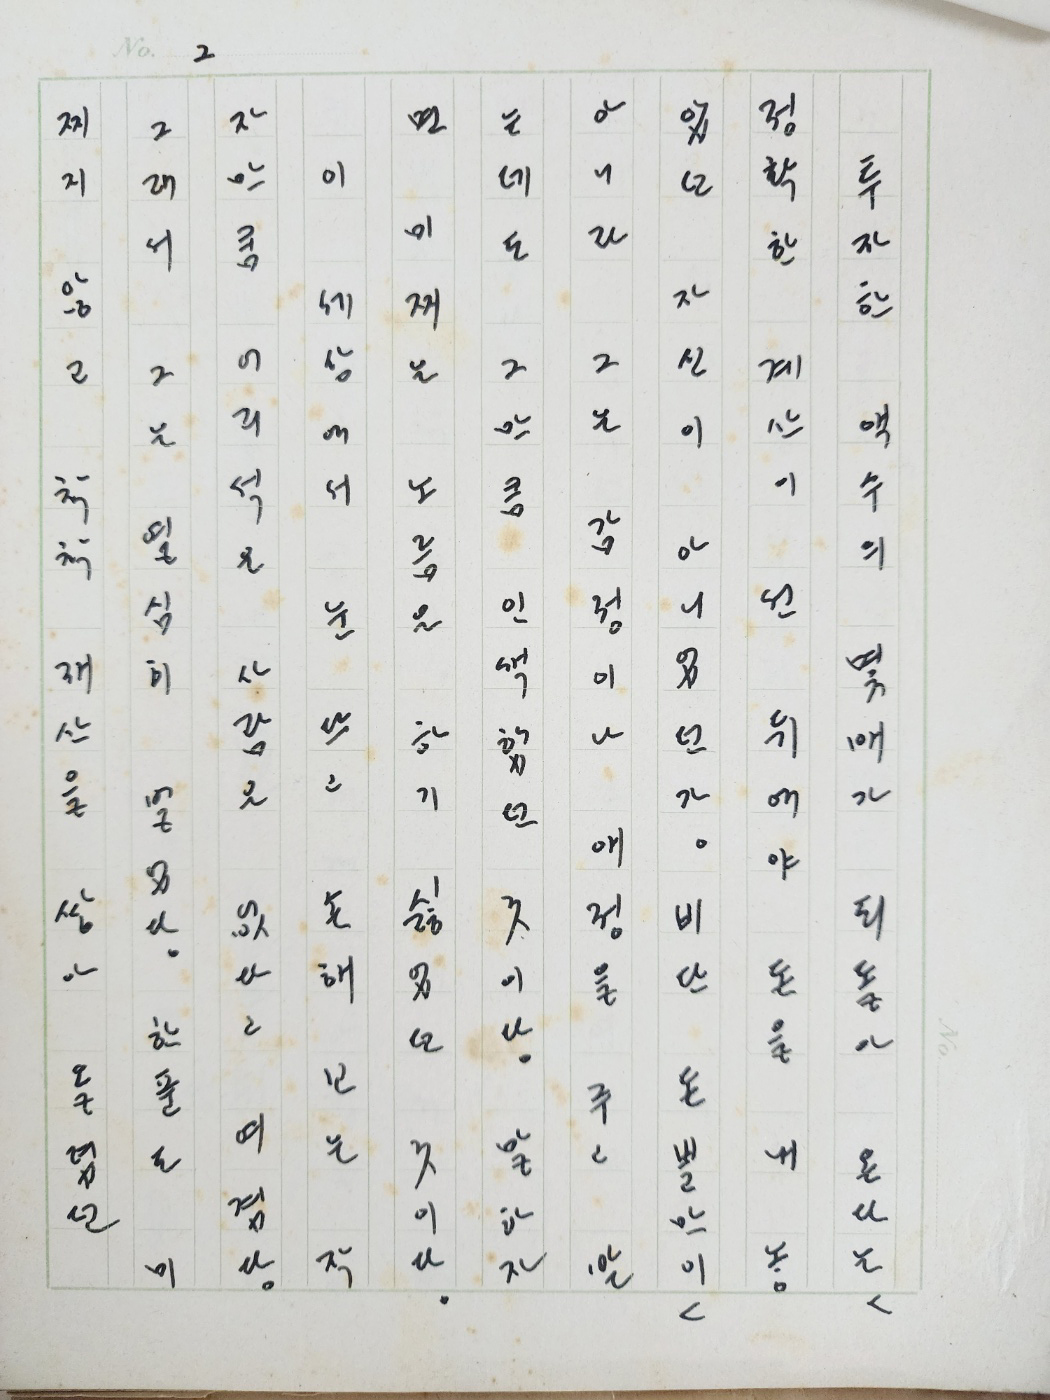 No. 2
투자한 액수의 몇 배가 되돌아 온다는
정확한 계산이 선 뒤에야 돈을 내놓
았던 자신이 아니었던가. 비단 돈뿐만이
아니라 그는 감정이나 애정을 주고 받
는데도 그만큼 인색했던 것이다. 말하자
면 미찌는 노름은 하기 싫었던 것이다.
이 세상에서 눈 뜨고 손해 보는 작
자만큼 어리석은 사람은 없다고 여겼다.
그래서 그는 열심히 벌었다. 한푼도 미
찌지 않고 착착 재산을 쌓아 올렸던